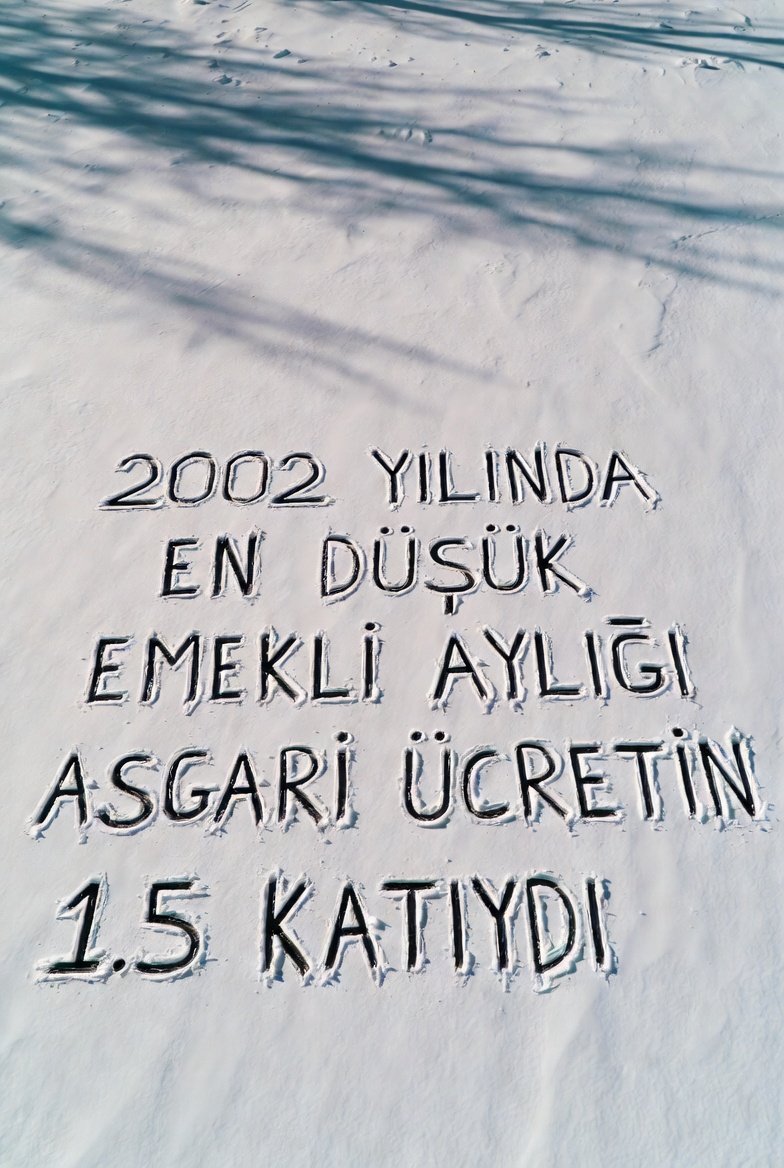 2002 YİLINDA
EN DÜŞÜK
EMEKLİ AYLIĞI
ASGARİ ÜCRETİN
1.5 KATIYDI